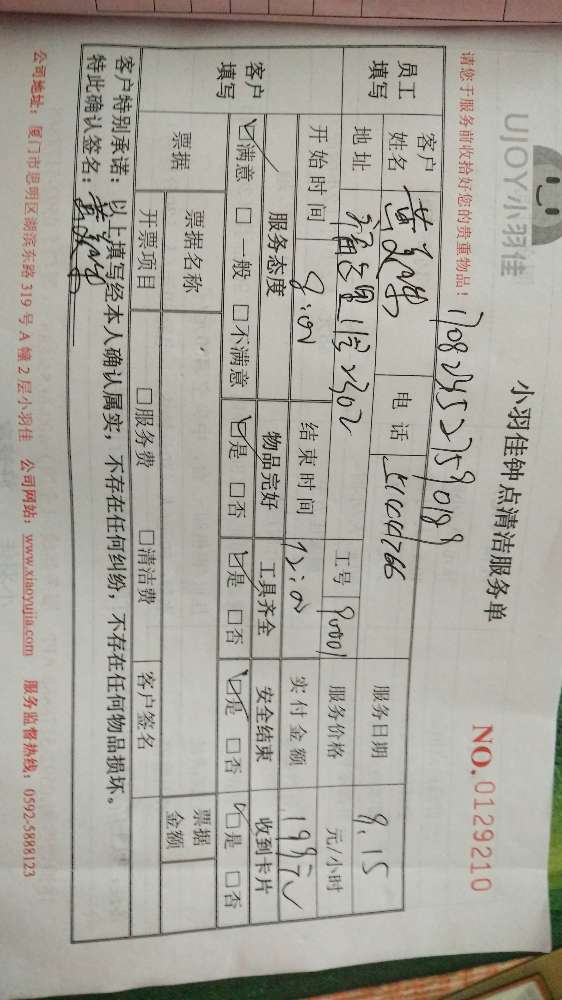 UJOY小羽佳
小羽佳钟点清洁服务单
NO.0129210
请您于服务前收拾好您的贵重物品！
员工填写
客户姓名 电话 服务日期 9.15
地址 工号 90001 服务价格 元/小时
开始时间 8:00 结束时间 12:00 实付金额
客户填写
服务态度 物品完好 工具齐全 安全结束 收到卡片
☑满意 □一般 □不满意 ☑是 □否 ☑是 □否 ☑是 □否 ☑是 □否
票据 票据名称 票据金额
开票项目 □服务费 □清洁费 客户签名
客户特别承诺：以上填写经本人确认属实，不存在任何纠纷，不存在任何物品损坏。
特此确认签名：
公司地址：厦门市思明区湖滨东路 319 号 A 幢 2 层小羽佳 公司网站：www.xiaoyujia.com 服务监督热线：0592-5888123